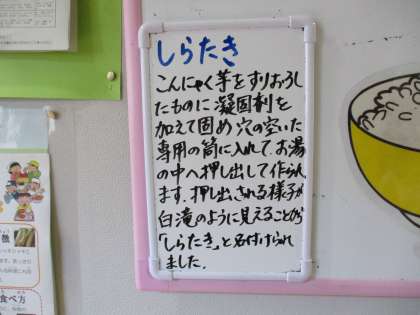 しらたき
こんにゃく芋をすりおろし
たものに凝固剤を
加えて固め穴の空いた
専用の筒に入れてお湯
の中へ押し出して作られ
ます。押し出される様子が
白滝のように見えることから
「しらたき」と名付けられ
ました。
食べ方